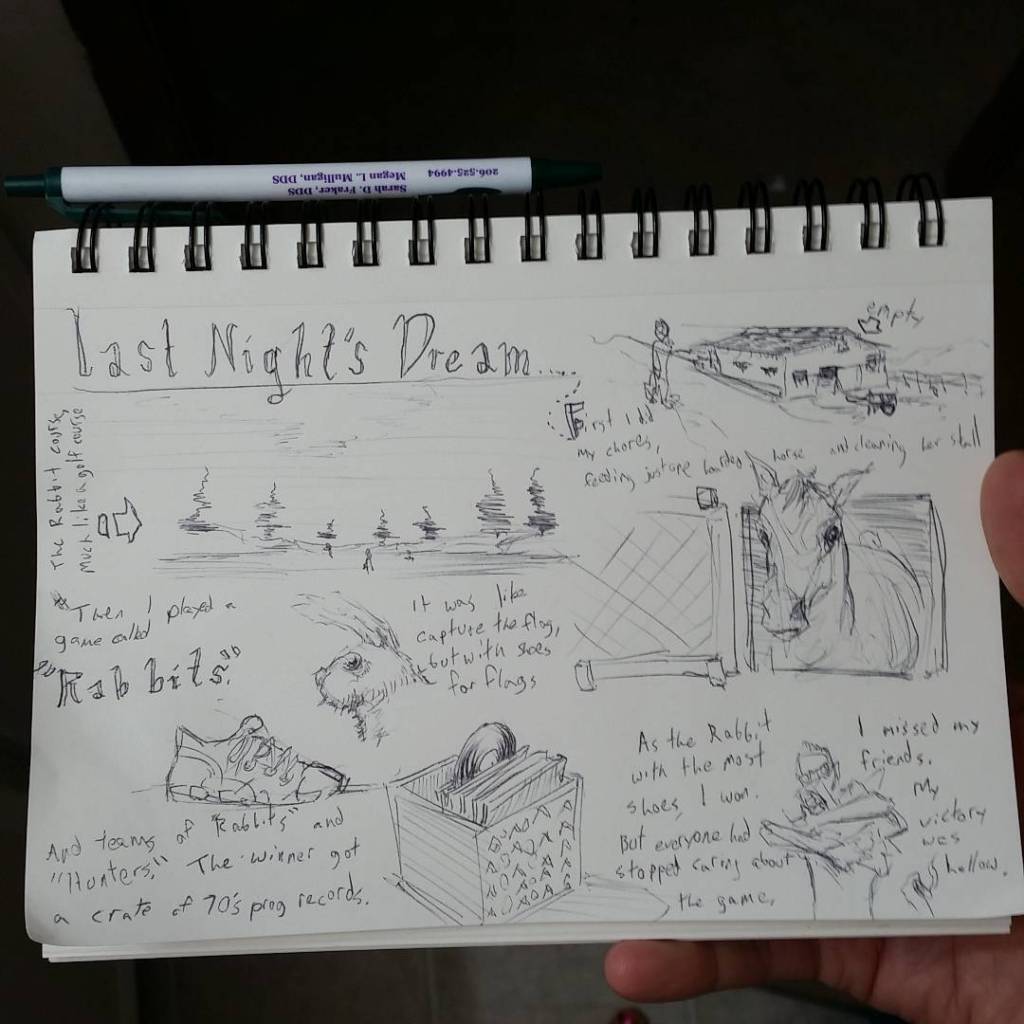 206.525.4994
Megan L. Mulligan, DDS
Sarah D. Fraker, DDS
Last Night's Dream....
empty
First I did
my chores,
feeding just one boarded horse and cleaning her stall
The Rabbit course,
much like a golf course
Then I played a
game called
"Rabbits."
It was like
capture the flag,
but with shoes
for flags
And teams of "Rabbits" and
"Hunters." The winner got
a crate of 70's prog records.
As the Rabbit
with the most
shoes, I won.
But everyone had
stopped caring about
the game.
I missed my
friends.
My
victory
was
hollow.